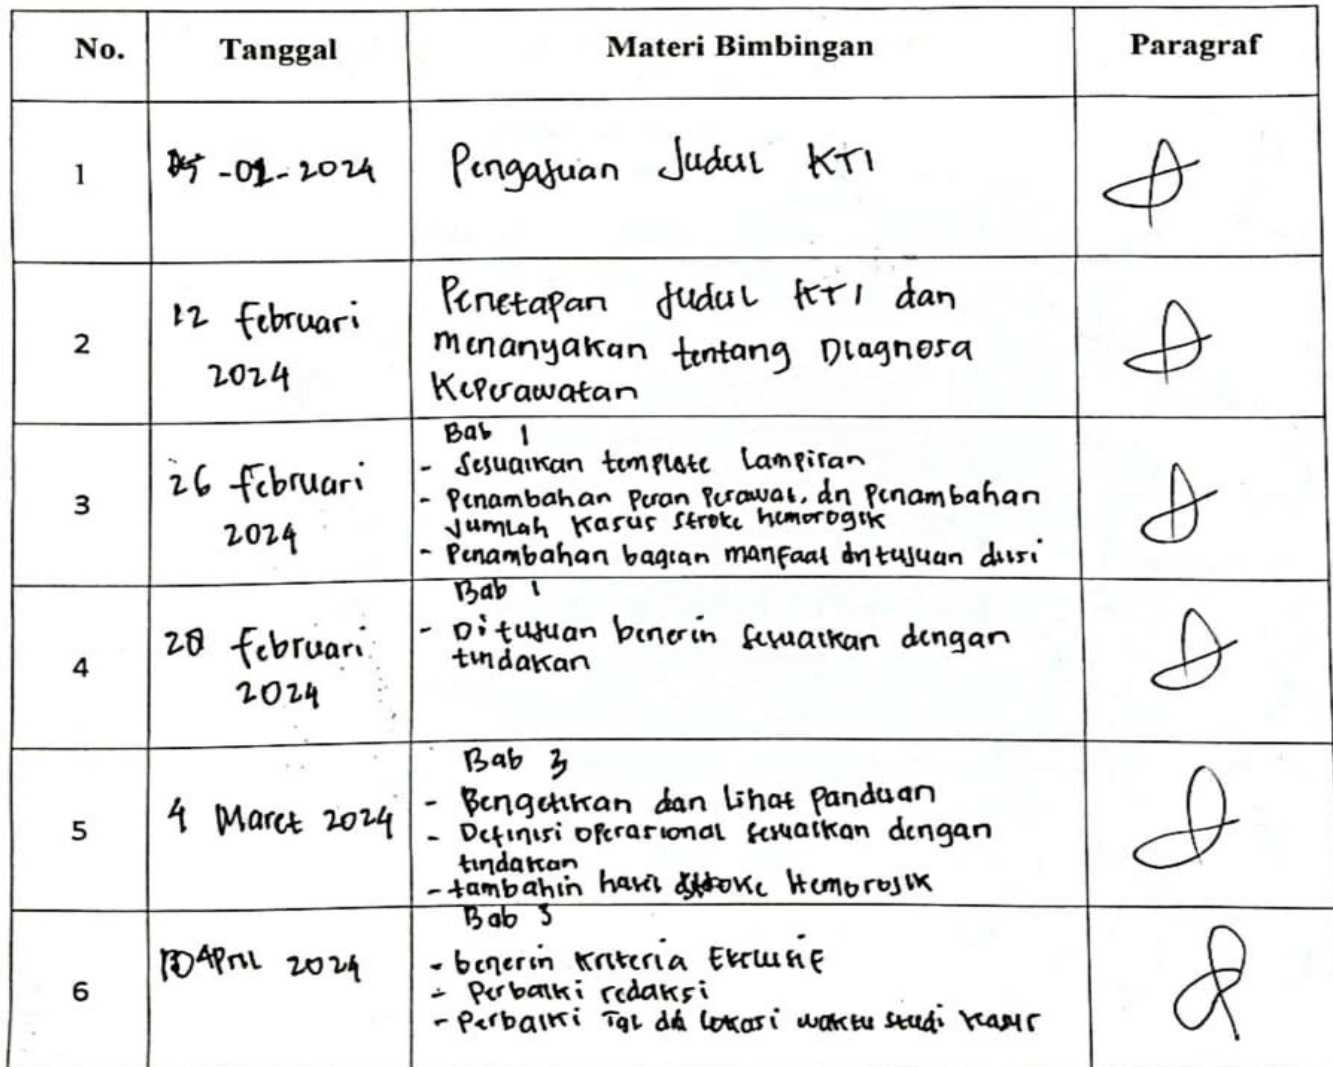 No. Tanggal Materi Bimbingan Paragraf
1 -2024 Pengajuan Judul KTI
2 12 Februari 2024 Penetapan Judul KTI dan
menanyakan tentang Diagnosa
Keperawatan
3 26 Februari 2024 Bab 1
- Sesuaikan template Lampiran
- Penambahan Peran Perawat, dn Penambahan
Jumlah Kasus Stroke hemorogik
- Penambahan bagian manfaat dn tujuan diisi
4 28 Februari 2024 Bab 1
- Di tujuan benerin sesuaikan dengan
tindakan
5 4 Maret 2024 Bab 3
- dan Lihat Panduan
- Definisi Operasional sesuaikan dengan
tindakan
- tambahin hasil stroke Hemorojik
6 April 2024 Bab 3
- benerin Kriteria Eksklusif
- Perbaiki redaksi
- Perbaiki Tgl dn lokasi waktu studi kasus